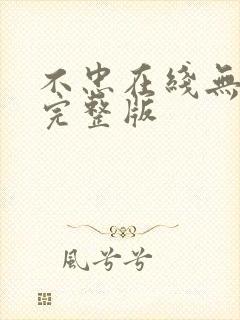 不忠在綫無
完整版
風兮兮